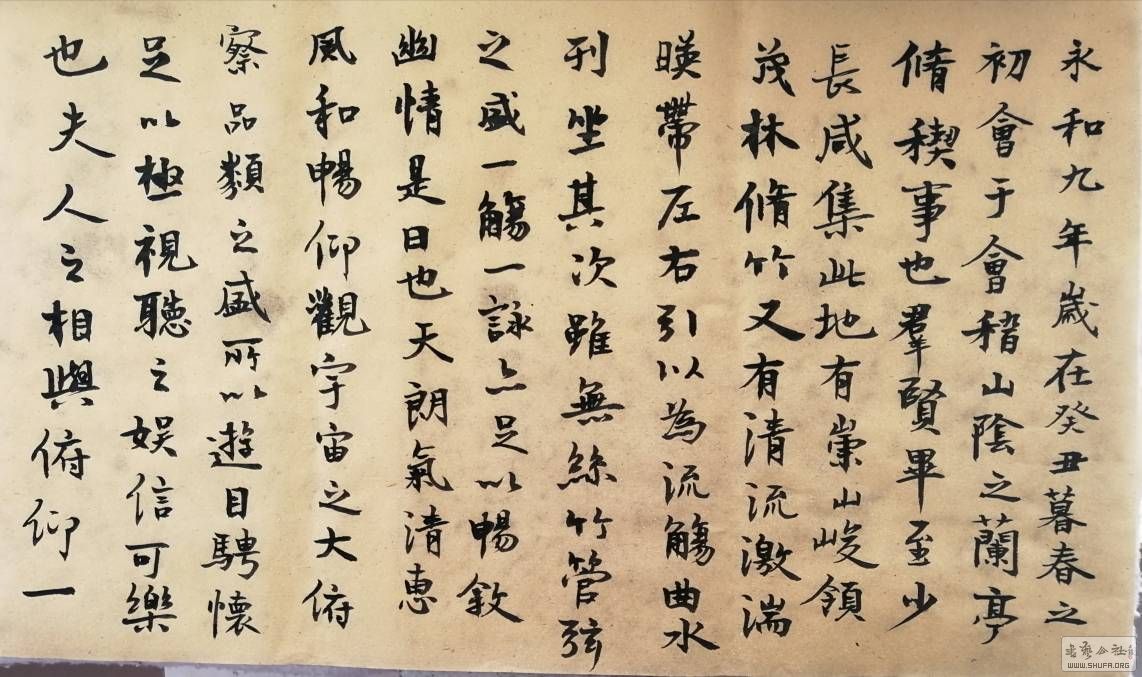 永和九年歲在癸丑暮春之
初會于會稽山陰之蘭亭
脩稧事也羣賢畢至少
長咸集此地有崇山峻領
茂林脩竹又有清流激湍
暎帶左右引以為流觴曲水
列坐其次雖無絲竹管弦
之盛一觴一詠亦足以暢敘
幽情是日也天朗氣清惠
風和暢仰觀宇宙之大俯
察品類之盛所以遊目騁懷
足以極視聽之娛信可樂
也夫人之相與俯仰一
WWW.SHUFA.ORG